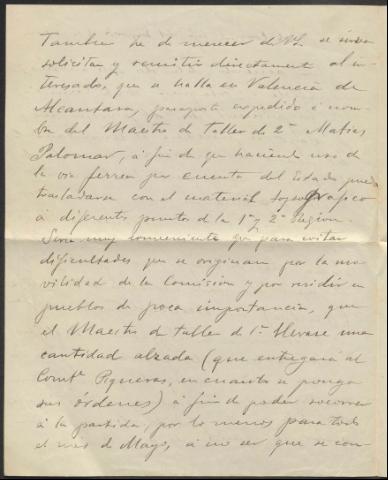 También he de merecer de V. se sirva
solicitar y remitir directamente al in-
teresado, que se halla en Valencia de
Alcantara, pasaporte expedido á nom-
bre del Maestro de taller de 2ª Matias
Palomar, á fin de que haciendo uso de
la via ferrea por cuenta del Estado pueda
trasladarse con el material topografico
á diferentes puntos de la 1ª y 2ª Region.
Sera muy conveniente que para evitar
dificultades que se originan por la mo-
vilidad de la Comision y por residir en
pueblos de poca importancia, que
el Maestro de taller de 1ª llevase una
cantidad alzada (que entregará al
Comte Piqueras, en cuanto se ponga
sus órdenes) á fin de poder socorrer
á la partida, por lo menos para todo
el mes de Mayo, á no ser que se con-